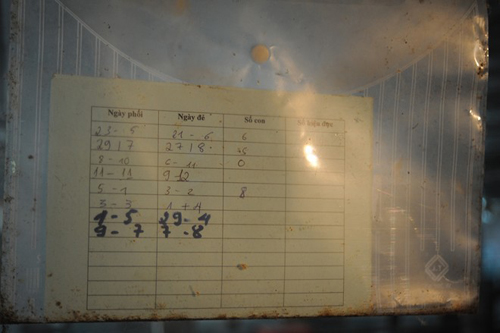 Ngày phối Ngày đẻ Số con Số hiệu đực
23 - 5 21 - 6 6
29 | 7 27 | 8
8 - 10 6 - 11 0
11 - 11 9 - 12
5 - 1 3 - 2 8
3 - 3 1 + 4
1 - 5 29 - 4
9 - 7 7 - 8